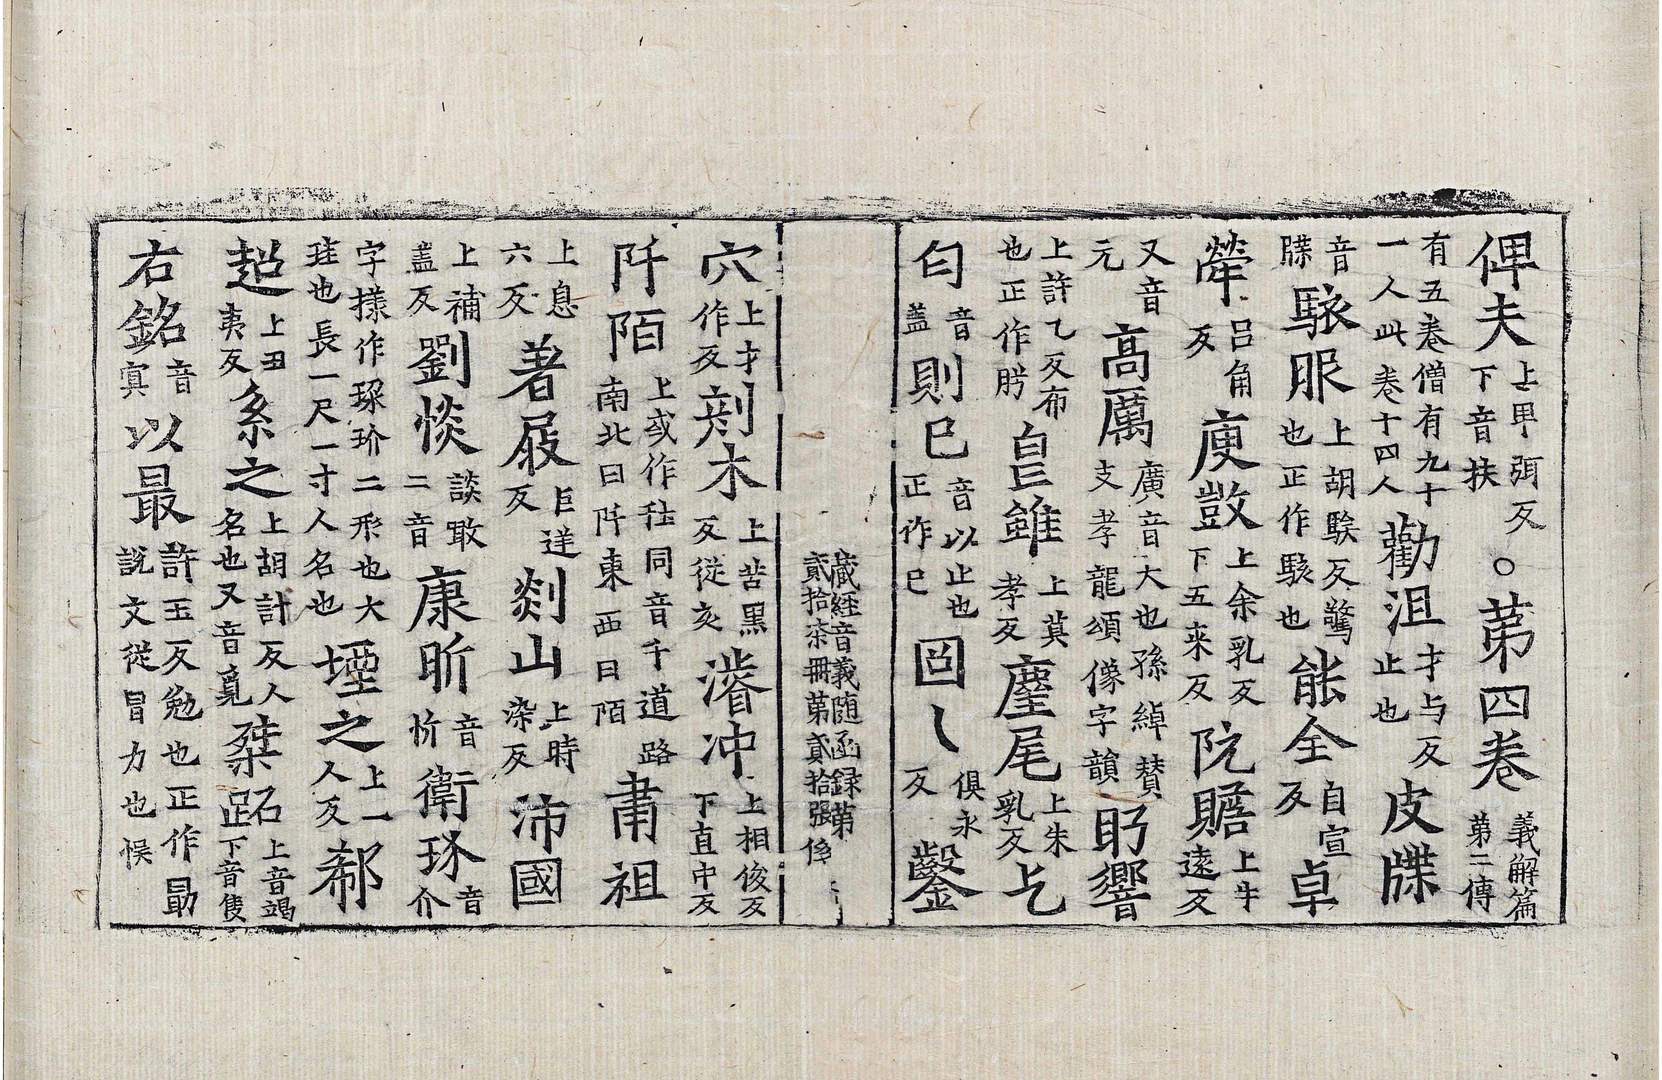 俾夫上卑弭反下音扶○第四卷義解篇第二傳
有五卷僧有九十一人此卷十四人勸沮才与反止也皮牒
音牒駭服上胡騃反驚也正作駭也能全自宣反卓
犖吕角反庾敳上余乳反下五来反阮贍上牛遠反
又音元高厲廣音大也孫綽贊支孝龍頌像字韻肹響
上許乙反布也正作肸皇雖上莫孝反麈尾上朱乳反乞
匄音蓋則巳音以止也正作已囧乀俱永反鑿
藏経音義随函録第貳拾柒冊第貳拾張
穴上才作反剋木上苦黒反從亥濬冲上相俊反下直中反
阡陌上或作䢼同音千道路南北曰阡東西曰陌肅祖
上息六反著屐巨逆反剡山上時染反沛國
上補蓋反劉惔談敢二音康昕音忻衛玠音介
字㨾作琛玠二形也大珪也長一尺一寸人名也堙之上一人反郗
超上丑夷反系之上胡計反人名也又音覔桀跖上音竭下音隻
右銘音冥以最許玉反勉也正作勖說文從冒力也悮